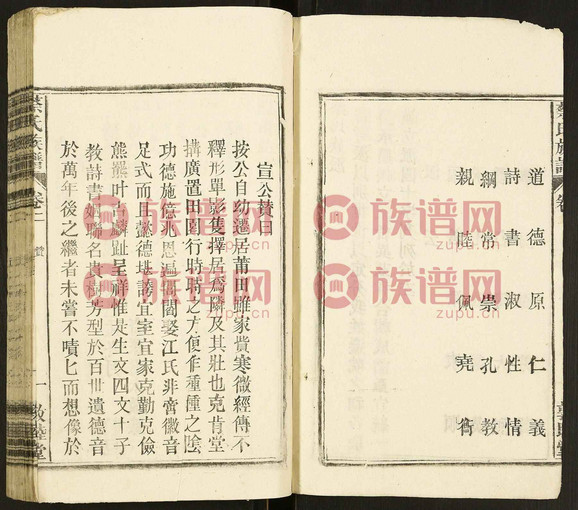 道德原仁義
詩書淑性情
綱常崇孔教
親睦佩堯
宣公贊曰
按公自幼遷居莆田雖家貲寒微經傳不
釋形單影隻擇居為隣及其壯也克肯堂
搆廣置田園行時時之方便作種種之陰
功德施億兆恩遍閭閻娶江氏非啻徽音
足式而且懿德堪誇宜室宜家克勤克儉
熊羆叶吉麟趾呈祥惟是生文四文十子
教詩書 聯名 芳型於百世遺德音
於萬年後之繼者未嘗不嘖匕而想像於
氏族譜
卷二
贊
一
敦睦堂
族谱网
zupu.cn
族谱网
zupu.cn
族谱网
zupu.cn
族谱网
zupu.cn